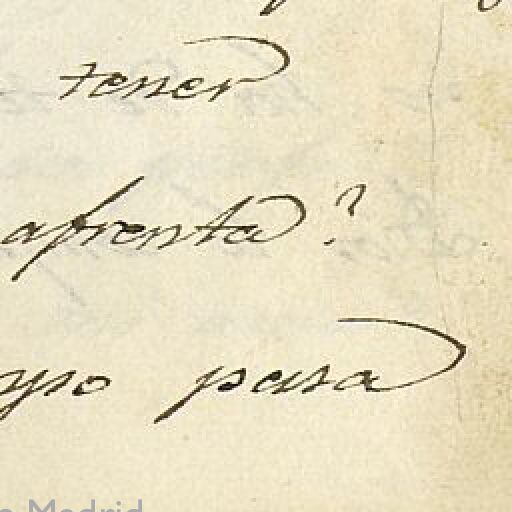 tener
afrenta?
para
Madrid